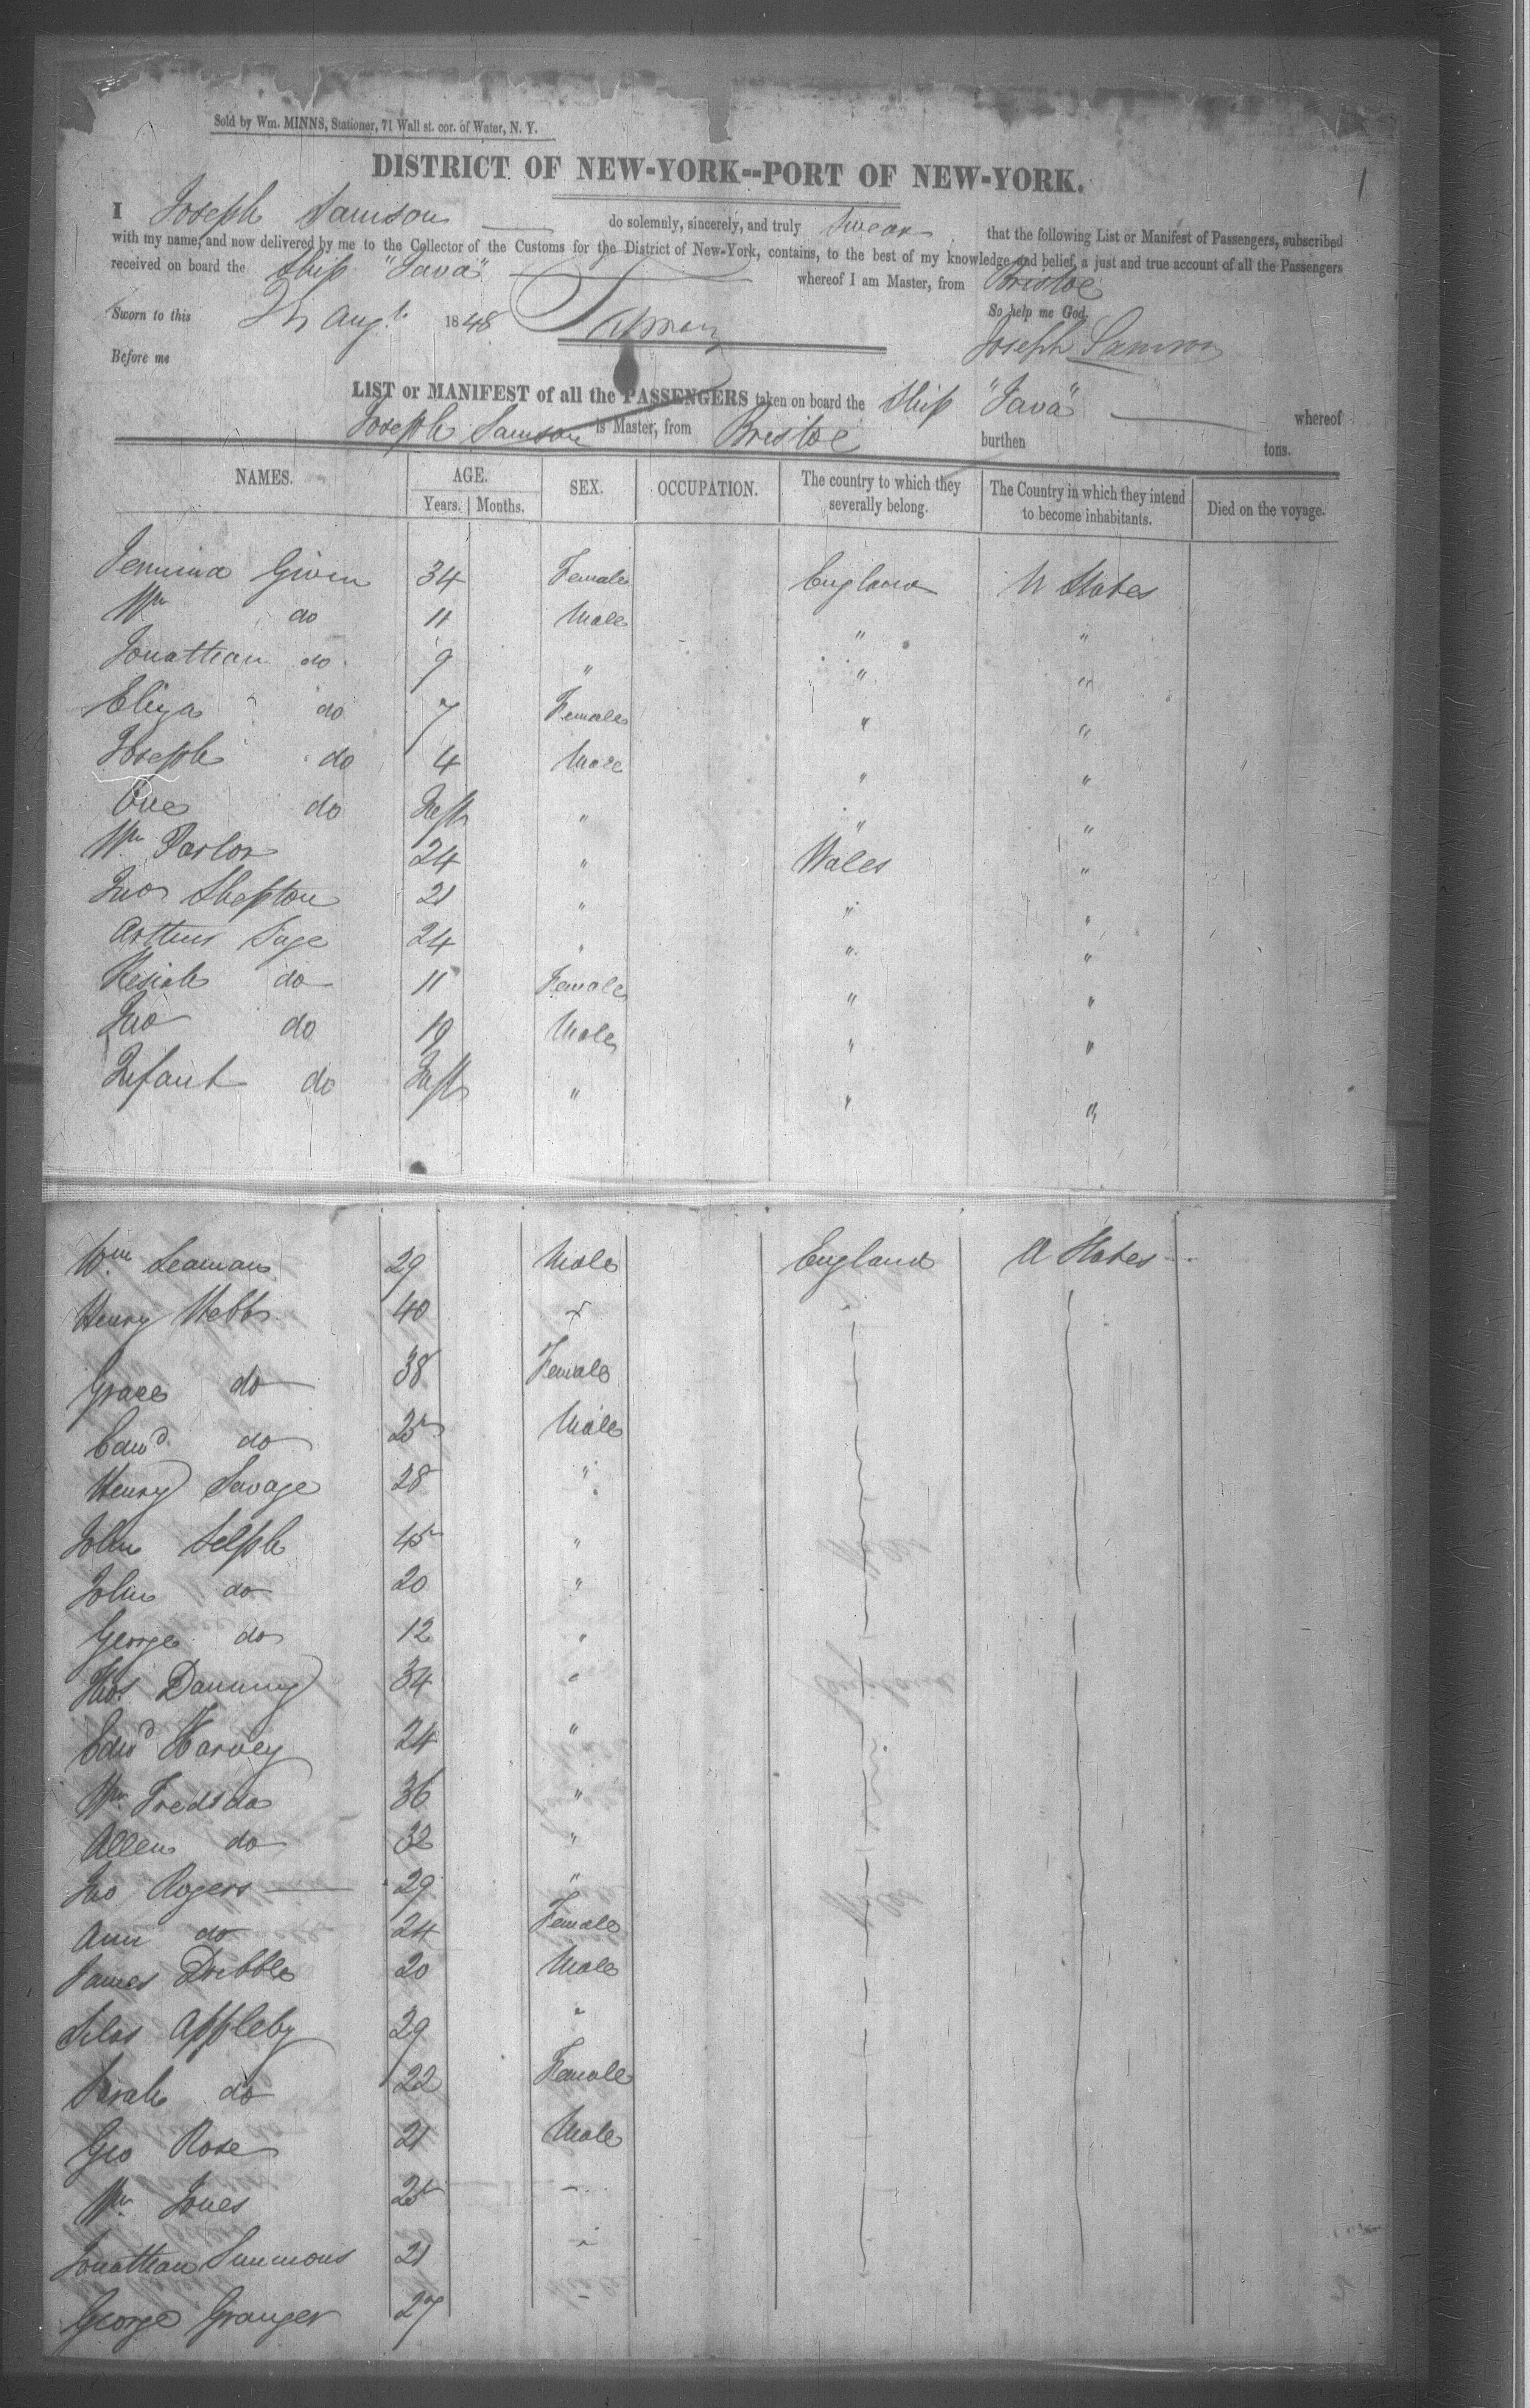 Sold by Wm. MINNS, Stationer, 71 Wall st. cor. of Water, N. Y.
1
DISTRICT OF NEW-YORK--PORT OF NEW-YORK.
I Joseph Samson do solemnly, sincerely, and truly Swear that the following List or Manifest of Passengers, subscribed
with my name, and now delivered by me to the Collector of the Customs for the District of New-York, contains, to the best of my knowledge and belief, a just and true account of all the Passengers
received on board the Ship "Java" whereof I am Master, from Bristol
Sworn to this Augt 1848 So help me God,
Before me Joseph Samson
LIST or MANIFEST of all the PASSENGERS taken on board the Ship "Java" whereof
Joseph Samson is Master, from Bristol burthen tons.
NAMES. AGE. SEX. OCCUPATION. The country to which they severally belong. The Country in which they intend to become inhabitants. Died on the voyage.
Years. Months.
Jemima Given 34 Female England U States
Wm do 11 Male " "
Jonathan do 9 " " "
Eliza do 7 Female " "
Joseph do 4 Male " "
One do Inft " " "
Wm Parlor 24 " Wales "
Jno Shepton 21 " " "
Arthur Sage 24 " " "
Kesiah do 11 Female " "
Jno do 19 Male " "
Infant do Inft " " "
Wm Seaman 29 Male England U States
Henry Webb 40
Grace do 38 Female
Edwd do 25 Male
Henry Savage 28 "
John Selph 45 "
John do 20 "
George do 12 "
Thos Danning 34 "
Edwd Harvey 24 "
Wm 36 "
Allen do 32 "
Jno Rogers 29 "
Ann do 24 Female
James Dribble 20 Male
Silas Appleby 29 "
Sarah do 22 Female
Geo Rose 21 Male
Wm Jones 25
Jonathan Simmons 21
George Granger 27